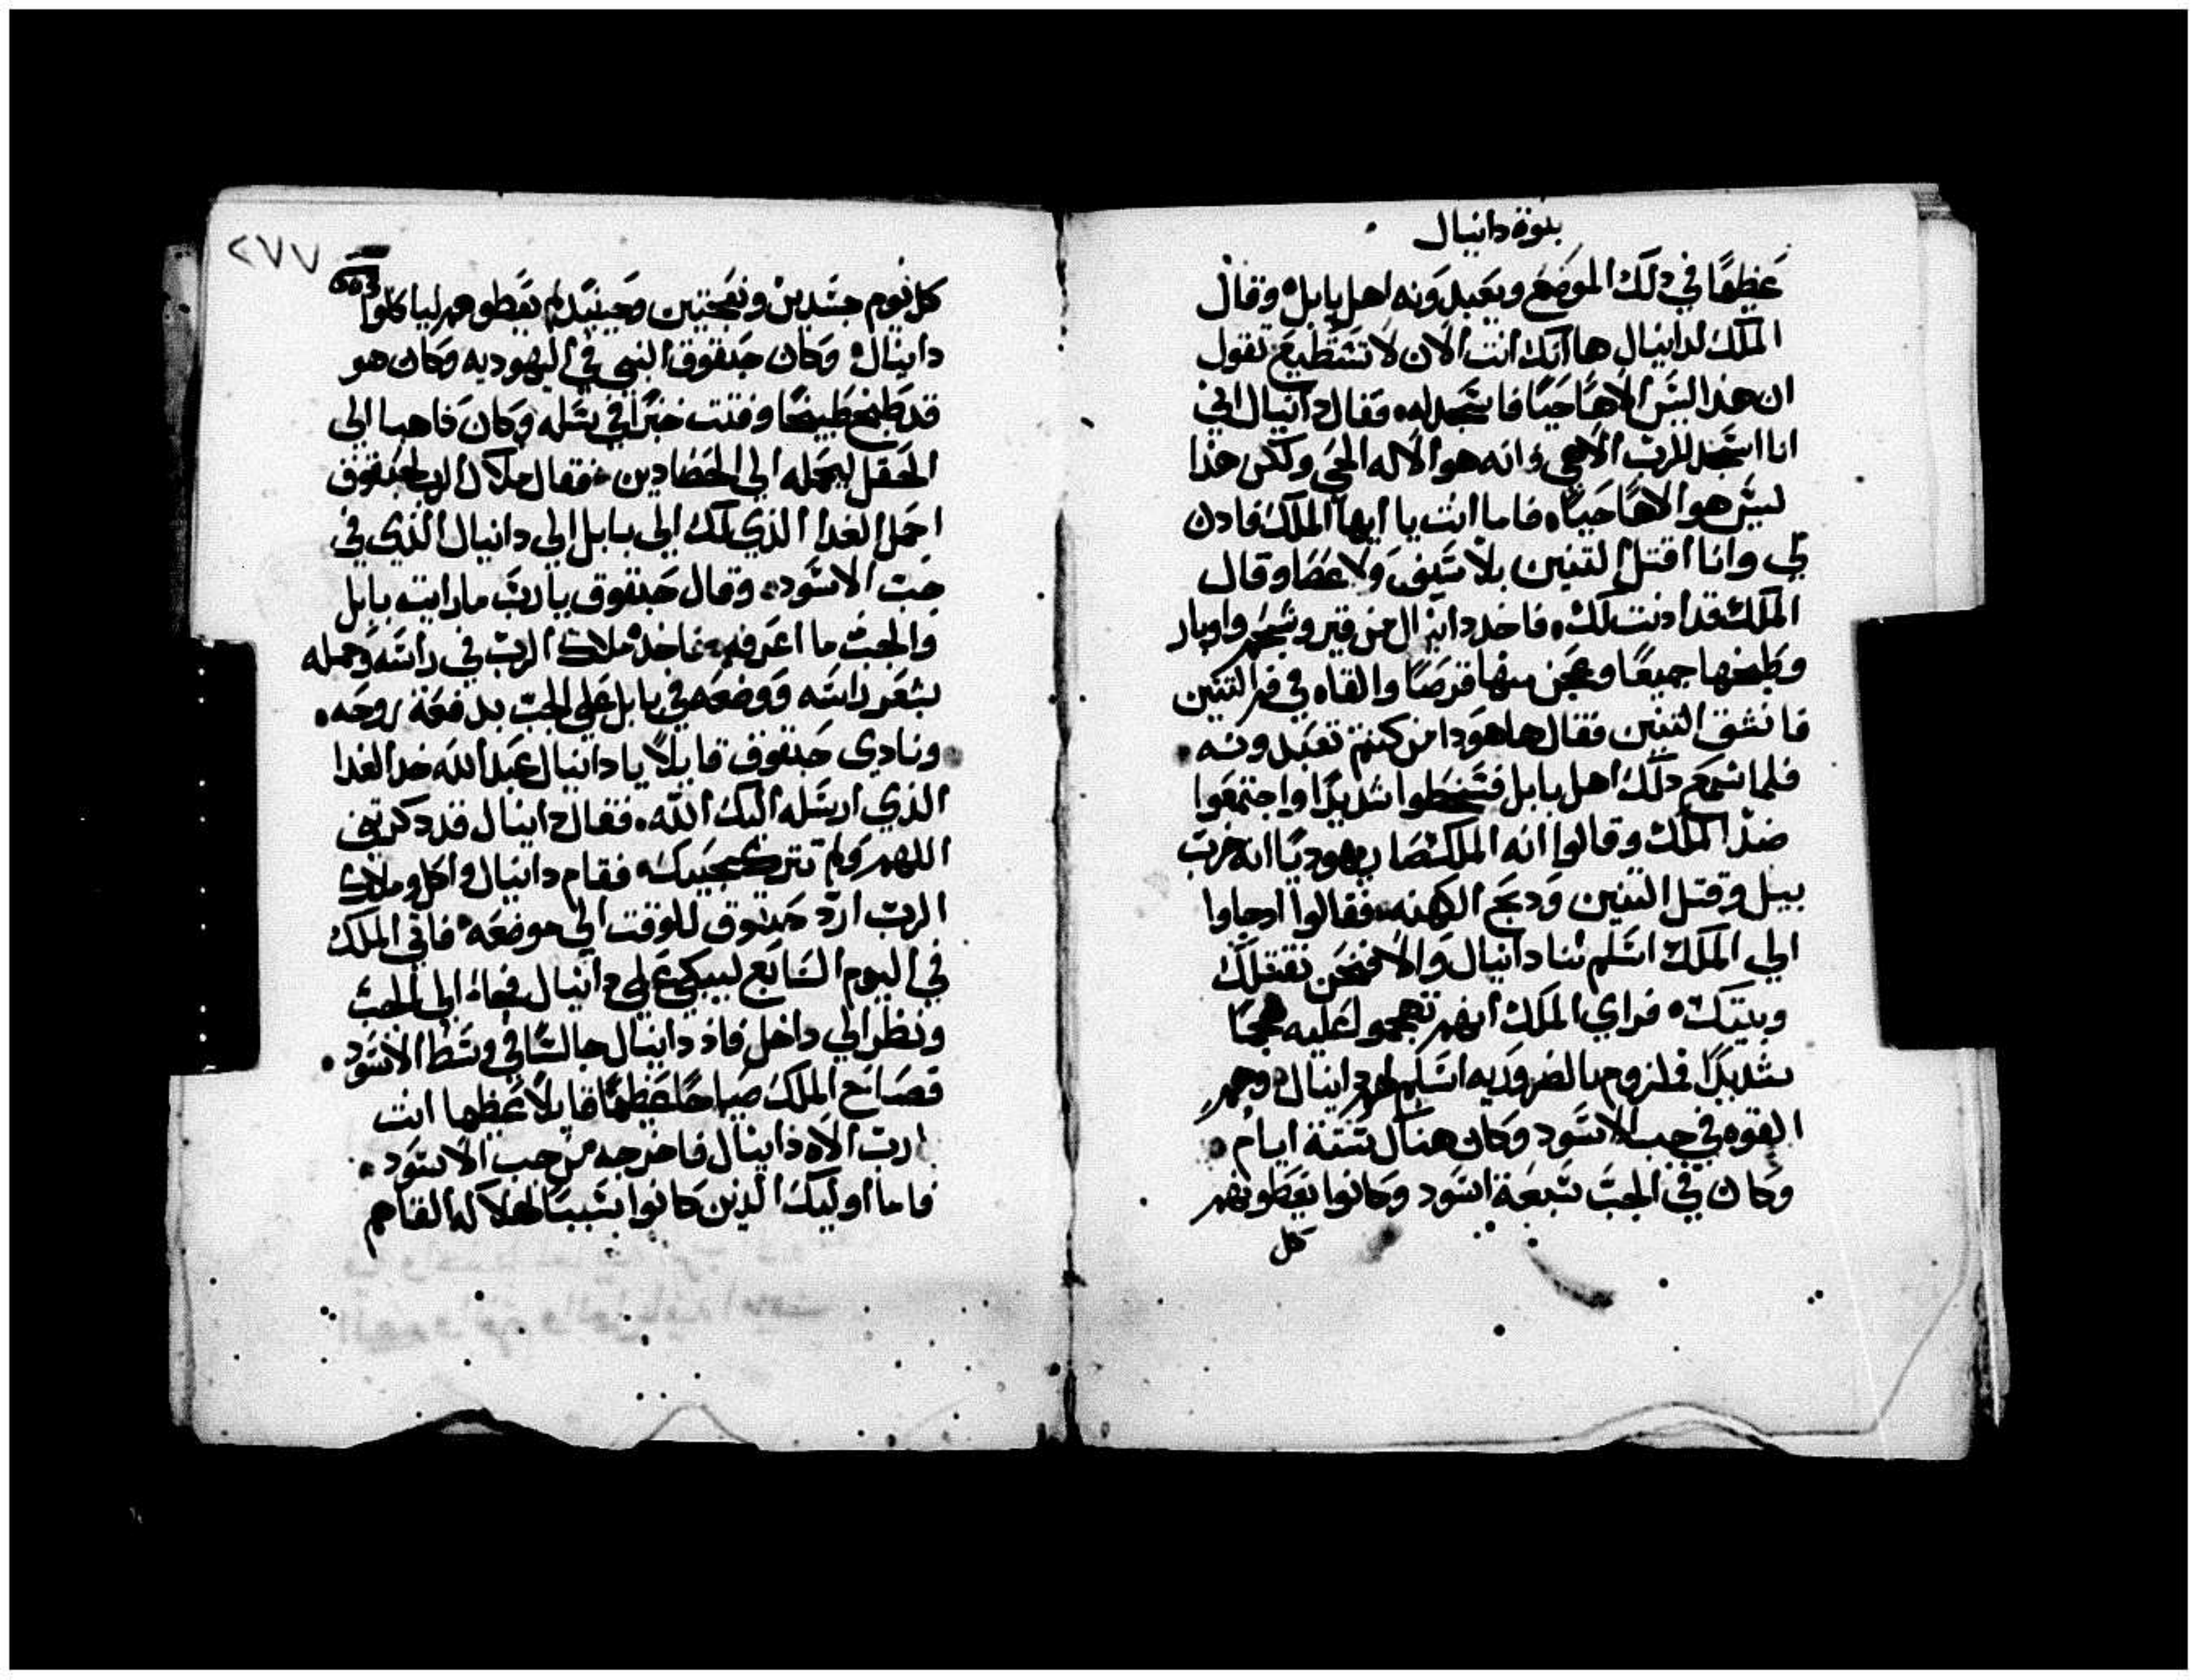 بنوة دانيال
عظيمًا في دلك الموضع ويعبدونه اهل بابل وقال
الملك لدانيال ها انك انت الان لا تستطيع تقول
ان هذا ليس الاهًا حيًا فاسجد له فقال دانيال اني
انا اسجد للرب الاهي انه هو الاله الحي ولكن هذا
ليس هو الاهًا حيًا فاما انت يا ايها الملك فادن
لي وانا اقتل التنين بلا سيف ولا عصا وقال
الملك قد ادنت لك فاخد دانيال من قير وشحم واوبار
وطبخها جميعًا وعجن منها قرصًا والقاه في فم التنين
فانشق التنين فقال ها هودا من كنتم تعبدونه
فلما سمع دلك اهل بابل فتسخطوا شديدًا واجتمعوا
ضد الملك وقالوا انه الملك صار يهوديًا انه خرب
بيل وقتل التنين ودبح الكهنه فقالوا اد جاوا
الي الملك اسلم لنا دانيال والا فنحن نقتلك
وبيتك فراي الملك انهم تهجموا عليه هجمًا
شديدًا فلزوم بالضروريه اسلم لهم دانيال وهم
القوه في جب الاسود وكان هناك ستة ايام
وكان في الجب سبعة اسود وكانوا يعطونهم
كل
٢٧٧
كل يوم جسدين ونعجتين وحينيد لم يعطوهم لياكلوا
دانيال وكان حبقوق النبي في اليهوديه وكان هو
قد طبخ طبيخًا وفتت خبزًا في سله وكان داهبا الي
الحقل ليحمله الي الحصادين فقال ملاك الرب لحبقوق
احمل الغدا الذي لك الي بابل الي دانيال الذي في
جب الاسود وقال حبقوق يا رب ما رايت بابل
والجب ما اعرفه فاخد ملاك الرب في راسه وحمله
بشعر راسه ووضعه في بابل علي الجب بدفعة روحه
ونادي حبقوق قايلًا يا دانيال عبد الله خد الغدا
الذي ارسله اليك الله فقال دانيال قد دكرتني
اللهم ولم تترك محبيك فقام دانيال واكل وملاك
الرب ارد حبقوق للوقت الي موضعه فاتي الملك
في اليوم السابع ليبكي علي دانيال فجاء الي الجب
ونظر الي داخل فاد دانيال جالسًا في وسط الاسود
فصاح الملك صياحًا عظيمًا قايلًا عظيما انت
ارب الاه دانيال فاخرجه من جب الاسود
فاما اوليك الذين كانوا سببًا لهلاكه القاهم